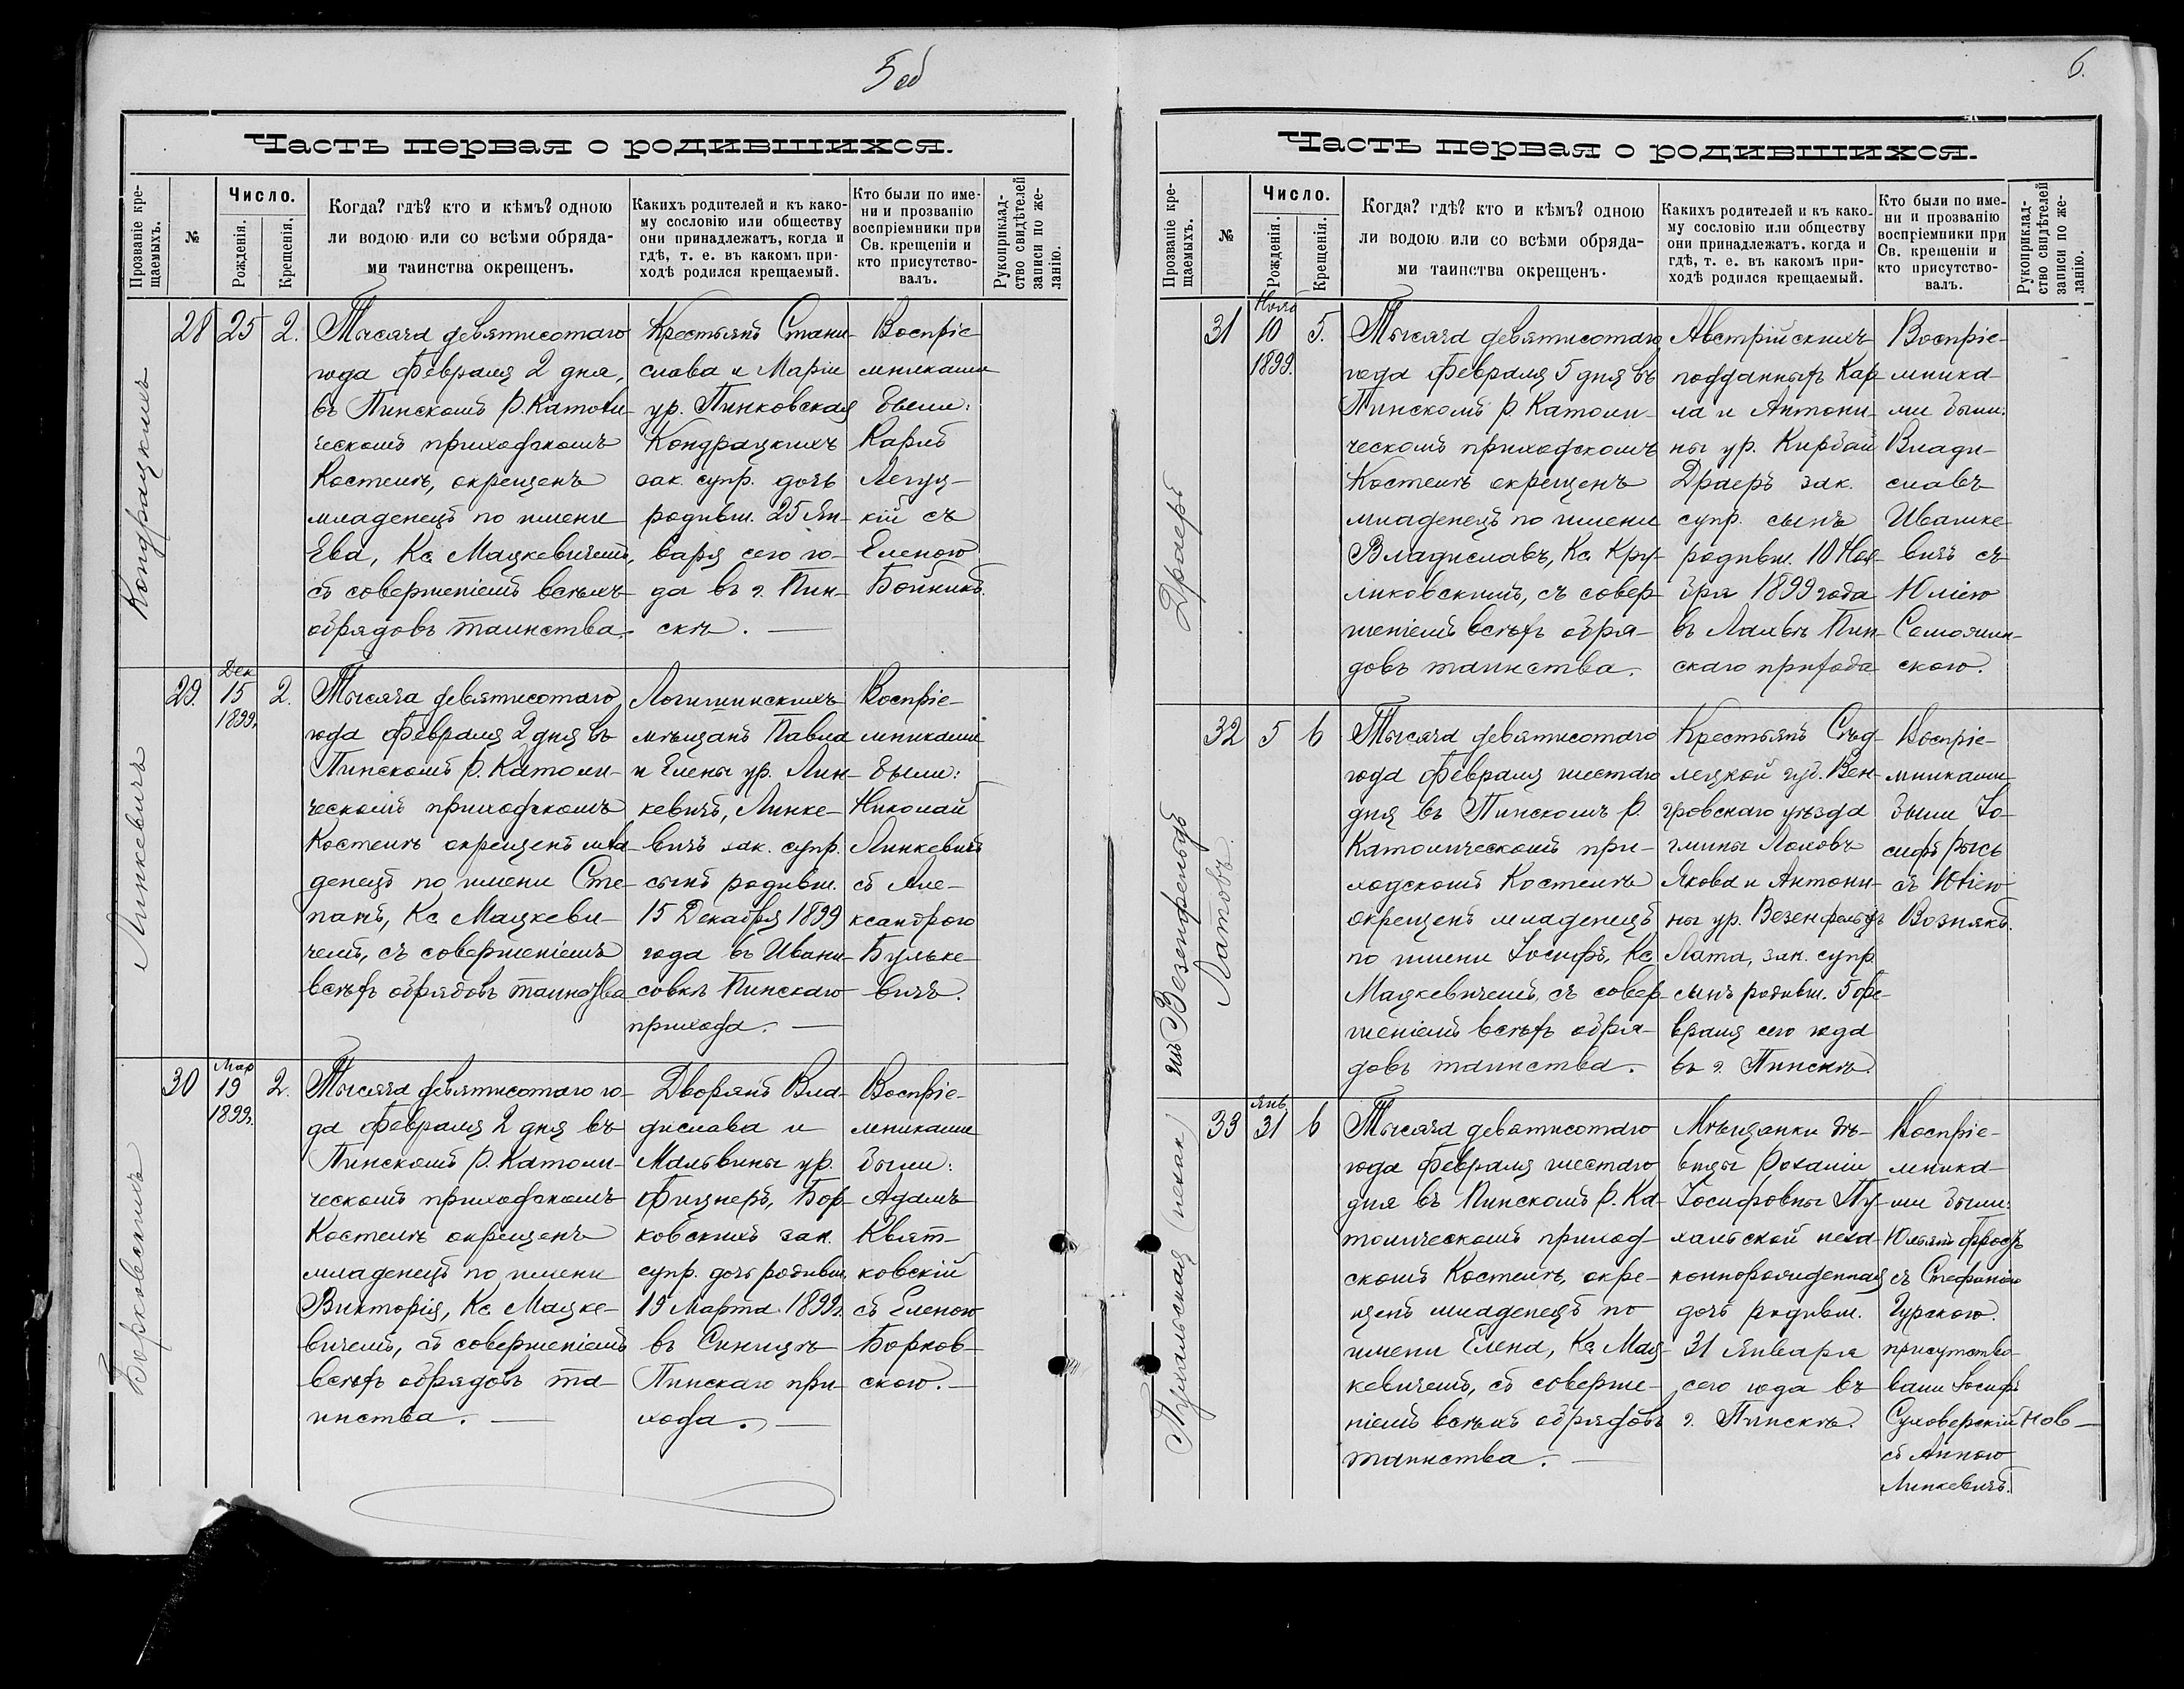 5 об
Часть первая о родившихся.
Прозваніе кре-
щаемыхъ.
№
Число.
Рожденія.
Крещенія.
Когда? гдѣ? кто и кѣмъ? одною
ли водою или со всѣми обряда-
ми таинства окрещенъ.
Какихъ родителей и къ како-
му сословію или обществу
они принадлежатъ, когда и
гдѣ, т. е. въ какомъ при-
ходѣ родился крещаемый.
Кто были по име-
ни и прозванію
воспріемники при
Св. крещеніи и
кто присутство-
валъ.
Рукоприклад-
ство свидѣтелей
записи по же-
ланію.
Кондрацкихъ
28
25
2.
Тысяча девятисотаго
года Февраля 2 дня,
въ Пинскомъ Р. Католи-
ческомъ приходскомъ
Костелѣ, окрещенъ
младенецъ по имени
Ева, Кс. Мацкевичемъ,
съ совершеніемъ всѣхъ
обрядовъ таинства.
Крестьянъ Стани-
слава и Маріи
ур. Пинковская
Кондрацкихъ
зак. супр. дочь
родивш. 25 Ян-
варя сего го-
да въ г. Пин-
скѣ.
Воспріе-
мниками
были:
Карлъ
Легуц-
кій съ
Еленою
Бойникъ.
Линкевичъ
29.
Дек
15
1899.
2.
Тысяча девятисотаго
года Февраля 2 дня въ
Пинскомъ Р. Католи-
ческомъ приходскомъ
Костелѣ окрещенъ мла-
денецъ по имени Сте-
панъ, Кс. Мацкеви-
чемъ, съ совершеніемъ
всѣхъ обрядовъ таинства
Логишинскихъ
мѣщанъ Павла
и Елены ур. Лин-
кевичъ, Линке-
вичъ зак. супр.
сынъ родивш.
15 Декабря 1899
года въ Ивани-
совкѣ Пинскаго
прихода.
Воспріе-
мниками
были:
Николай
Линкевичъ
съ Але-
ксандрою
Бульке-
вичъ.
Борковскихъ
30
Мар
19
1899.
2.
Тысяча девятисотаго го-
да Февраля 2 дня въ
Пинскомъ Р. Католи-
ческомъ приходскомъ
Костелѣ окрещенъ
младенецъ по имени
Викторія, Кс. Мацке-
вичемъ, съ совершеніемъ
всѣхъ обрядовъ та-
инства.
Дворянъ Вла-
дислава и
Мальвины ур.
Фицнеръ, Бор-
ковскихъ зак.
супр. дочь родивш.
19 Марта 1899 г.
въ Синицѣ
Пинскаго при-
хода.
Воспріе-
мниками
были:
Адамъ
Квят-
ковскій
съ Еленою
Борков-
скою.
6.
Часть первая о родившихся.
Прозваніе кре-
щаемыхъ.
№
Число.
Рожденія.
Крещенія.
Когда? гдѣ? кто и кѣмъ? одною
ли водою или со всѣми обряда-
ми таинства окрещенъ.
Какихъ родителей и къ како-
му сословію или обществу
они принадлежатъ. когда и
гдѣ, т. е. въ какомъ при-
ходѣ родился крещаемый.
Кто были по име-
ни и прозванію
воспріемники при
Св. крещеніи и
кто присутство-
валъ.
Рукоприклад-
ство свидѣтелей
записи по же-
ланію.
Драеръ
31
Нояб
10
1899.
5.
Тысяча девятисотаго
года Февраля 5 дня въ
Пинскомъ Р Католи-
ческомъ приходскомъ
Костелѣ окрещенъ
младенецъ по имени
Владиславъ, Кс. Кру-
ликовскимъ, съ совер-
шеніемъ всѣхъ обря-
довъ таинства.
Австрійскихъ
подданныхъ Кар-
ла и Антони-
ны ур. Кирбай
Драеръ зак.
супр. сынъ
родивш. 10 Ноя-
бря 1899 года
въ Лахвѣ Пин-
скаго прихода
Воспріе-
мника-
ми были:
Влади-
славъ
Ивашке-
вичъ съ
Юліею
Самолин-
скою.
изъ Везенфельдъ
Латовъ.
32
5
6
Тысяча девятисотаго
года Февраля шестаго
дня въ Пинскомъ Р.
Католическомъ при-
ходскомъ Костелѣ
окрещенъ младенецъ
по имени Іосифъ, Кс.
Мацкевичемъ, съ совер-
шеніемъ всѣхъ обря-
довъ таинства.
Крестьянъ Сѣд-
лецкой губ. Вен-
гровскаго уѣзда
гмины Лоховъ
Якова и Антони-
ны ур. Везенфельдъ
Лата, зак. супр.
сынъ родивш. 5 фе-
враля сего года
въ г. Пинскѣ.
Воспріе-
мниками
были Іо-
сифъ Рысь
съ Юліею
Вознякъ.
Пухальская (незак)
33
Янв.
31
6
Тысяча девятисотаго
года Февраля шестаго
дня въ Пинскомъ Р. Ка-
толическомъ приход-
скомъ Костелѣ, окре-
щенъ младенецъ по
имени Елена, Кс. Мац-
кевичемъ, съ соверше-
ніемъ всѣхъ обрядовъ
таинства.
Мѣщанки дѣ-
вицы Розаліи
Іосифовны Пу-
хальской неза-
коннорожденная
дочь родивш.
31 Января
сего года въ
г. Пинскѣ.
Воспріе-
мника-
ми были:
съ Стефаніею
Гурскою.
присутство-
вали Іосифъ
Суловерскій нов
съ Анною
Линкевичъ.